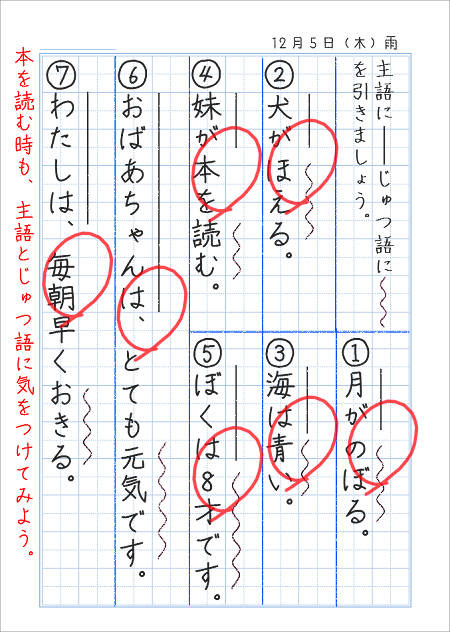 12月5日（木）雨
主語に――じゅつ語に〜〜〜
を引きましょう。
①月がのぼる。
②犬がほえる。
③海は青い。
④妹が本を読む。
⑤ぼくは8才です。
⑥おばあちゃんは、とても元気です。
⑦わたしは、毎朝早くおきる。
本を読む時も、主語とじゅつ語に気をつけてみよう。